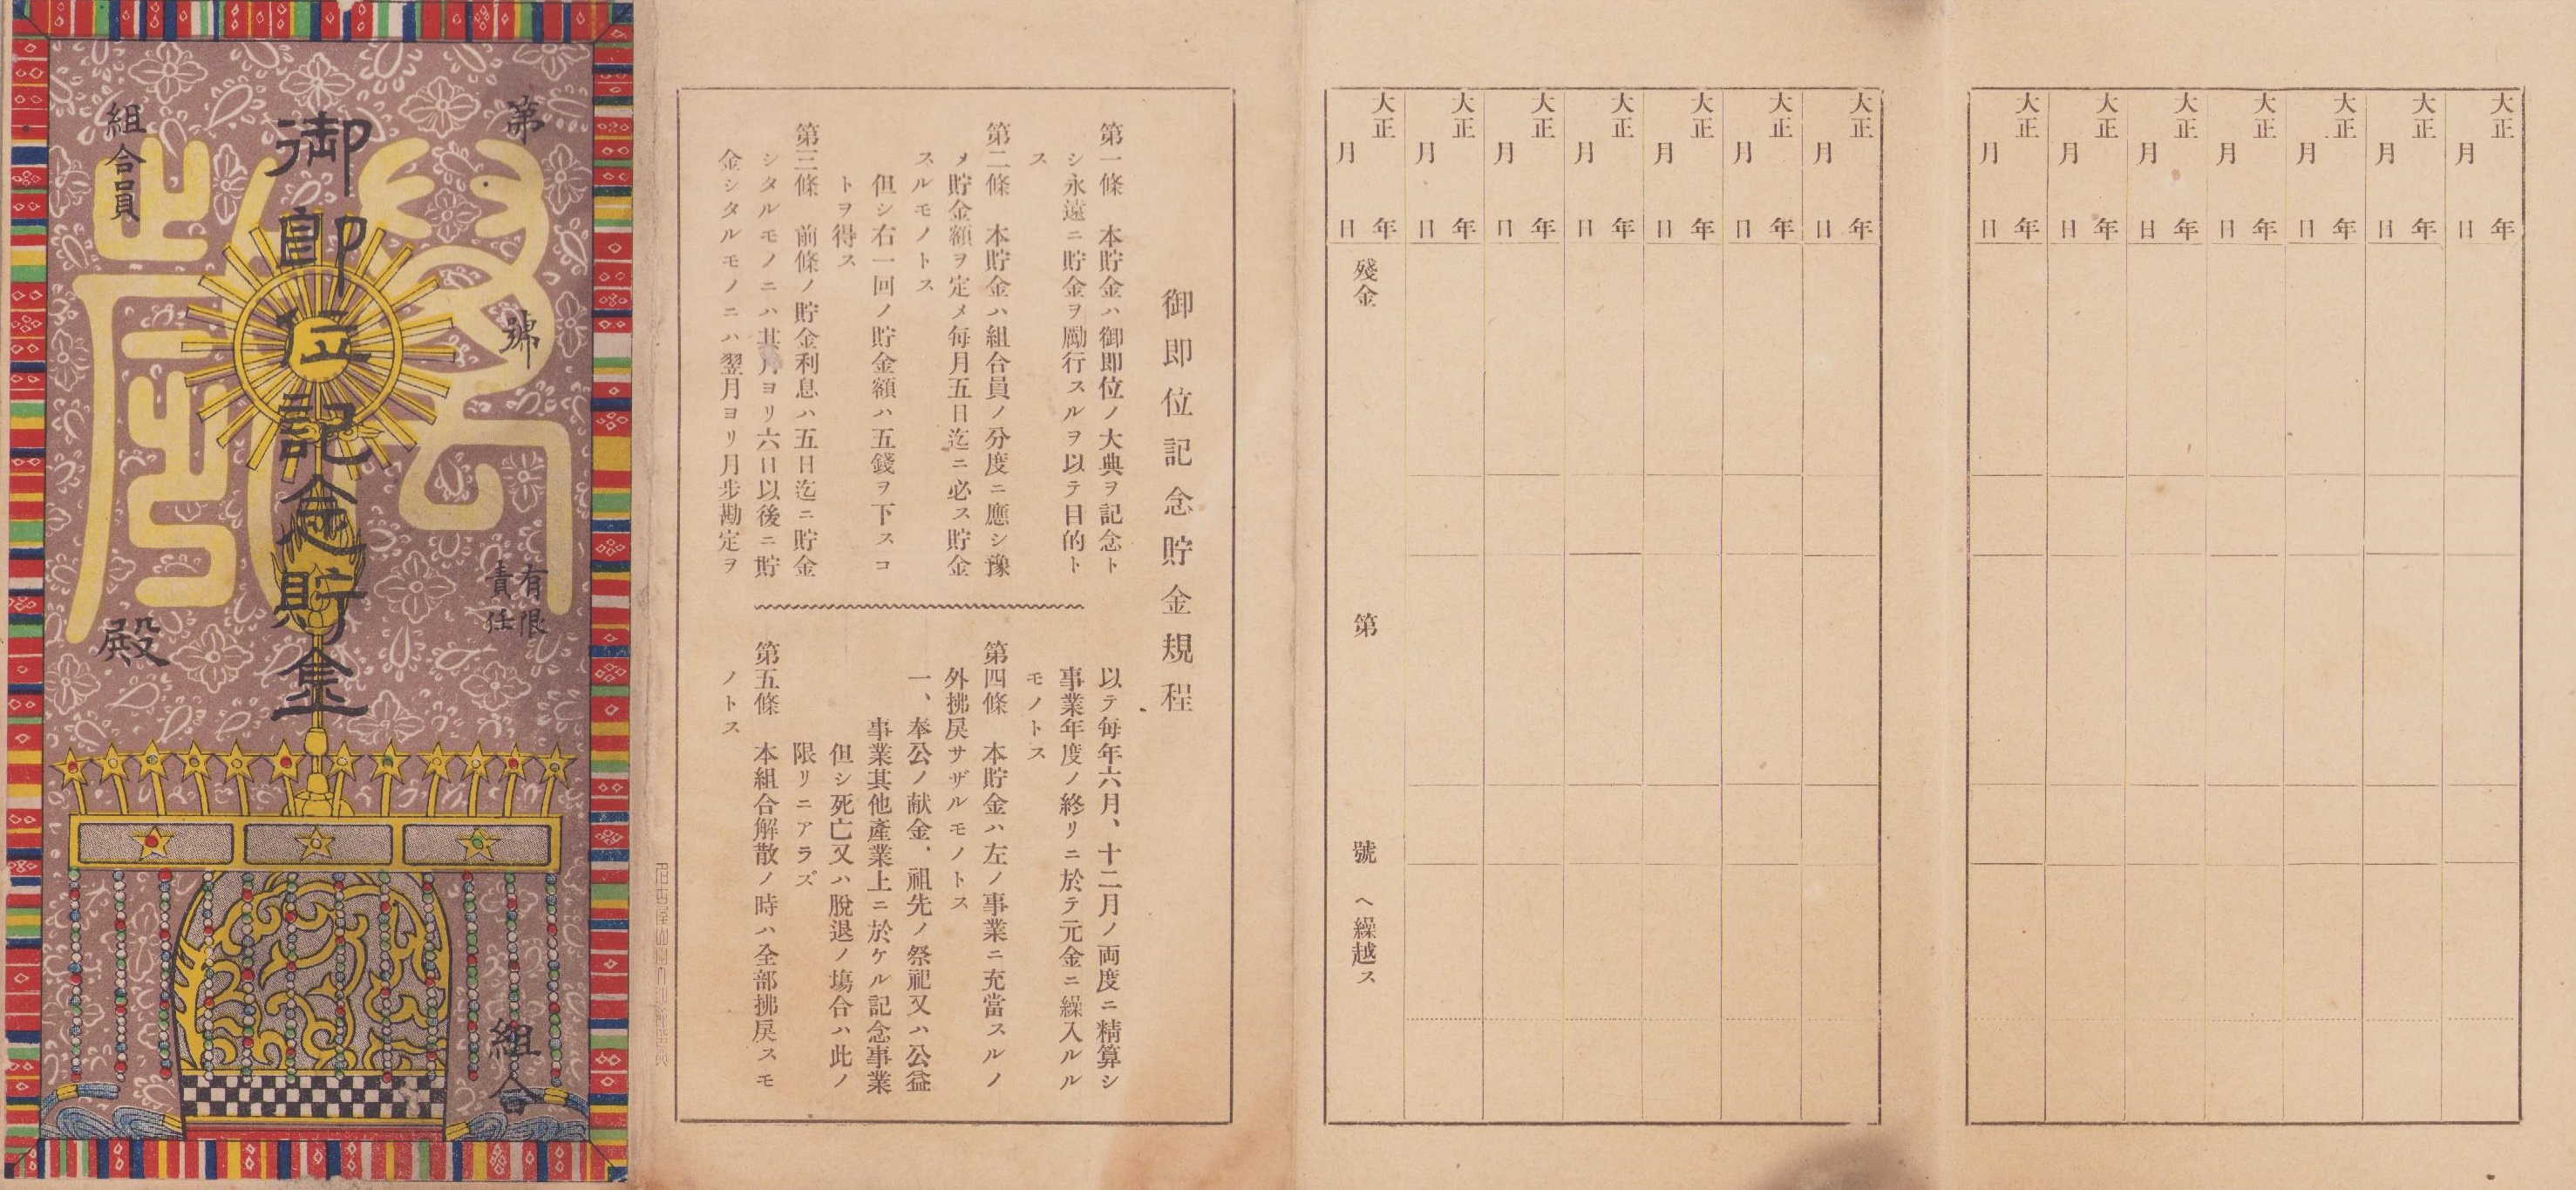 第 號
有限
責任
組合
御即位記念貯金
組合員
殿
御即位記念貯金規程
第一條 本貯金ハ御即位ノ大典ヲ記念ト
シ永遠ニ貯金ヲ勵行スルヲ以テ目的ト
ス
第二條 本貯金ハ組合員ノ分度ニ應シ豫
メ貯金額ヲ定メ每月五日迄ニ必ス貯金
スルモノトス
但シ右一回ノ貯金額ハ五錢ヲ下スコ
トヲ得ス
第三條 前條ノ貯金利息ハ五日迄ニ貯金
シタルモノニハ其月ヨリ六日以後ニ貯
金シタルモノニハ翌月ヨリ月步勘定ヲ
以テ每年六月、十二月ノ両度ニ精算シ
事業年度ノ終リニ於テ元金ニ繰入ルル
モノトス
第四條 本貯金ハ左ノ事業ニ充當スルノ
外拂戾サザルモノトス
一、奉公ノ献金、祖先ノ祭祀又ハ公益
事業其他產業上ニ於ケル記念事業
但シ死亡又ハ脫退ノ塲合ハ此ノ
限リニアラズ
第五條 本組合解散ノ時ハ全部拂戾スモ
ノトス
大正 年
月 日
大正 年
月 日
大正 年
月 日
大正 年
月 日
大正 年
月 日
大正 年
月 日
大正 年
月 日
大正 年
月 日
大正 年
月 日
大正 年
月 日
大正 年
月 日
大正 年
月 日
大正 年
月 日
大正 年
月 日
殘金 第 號 ヘ繰越ス